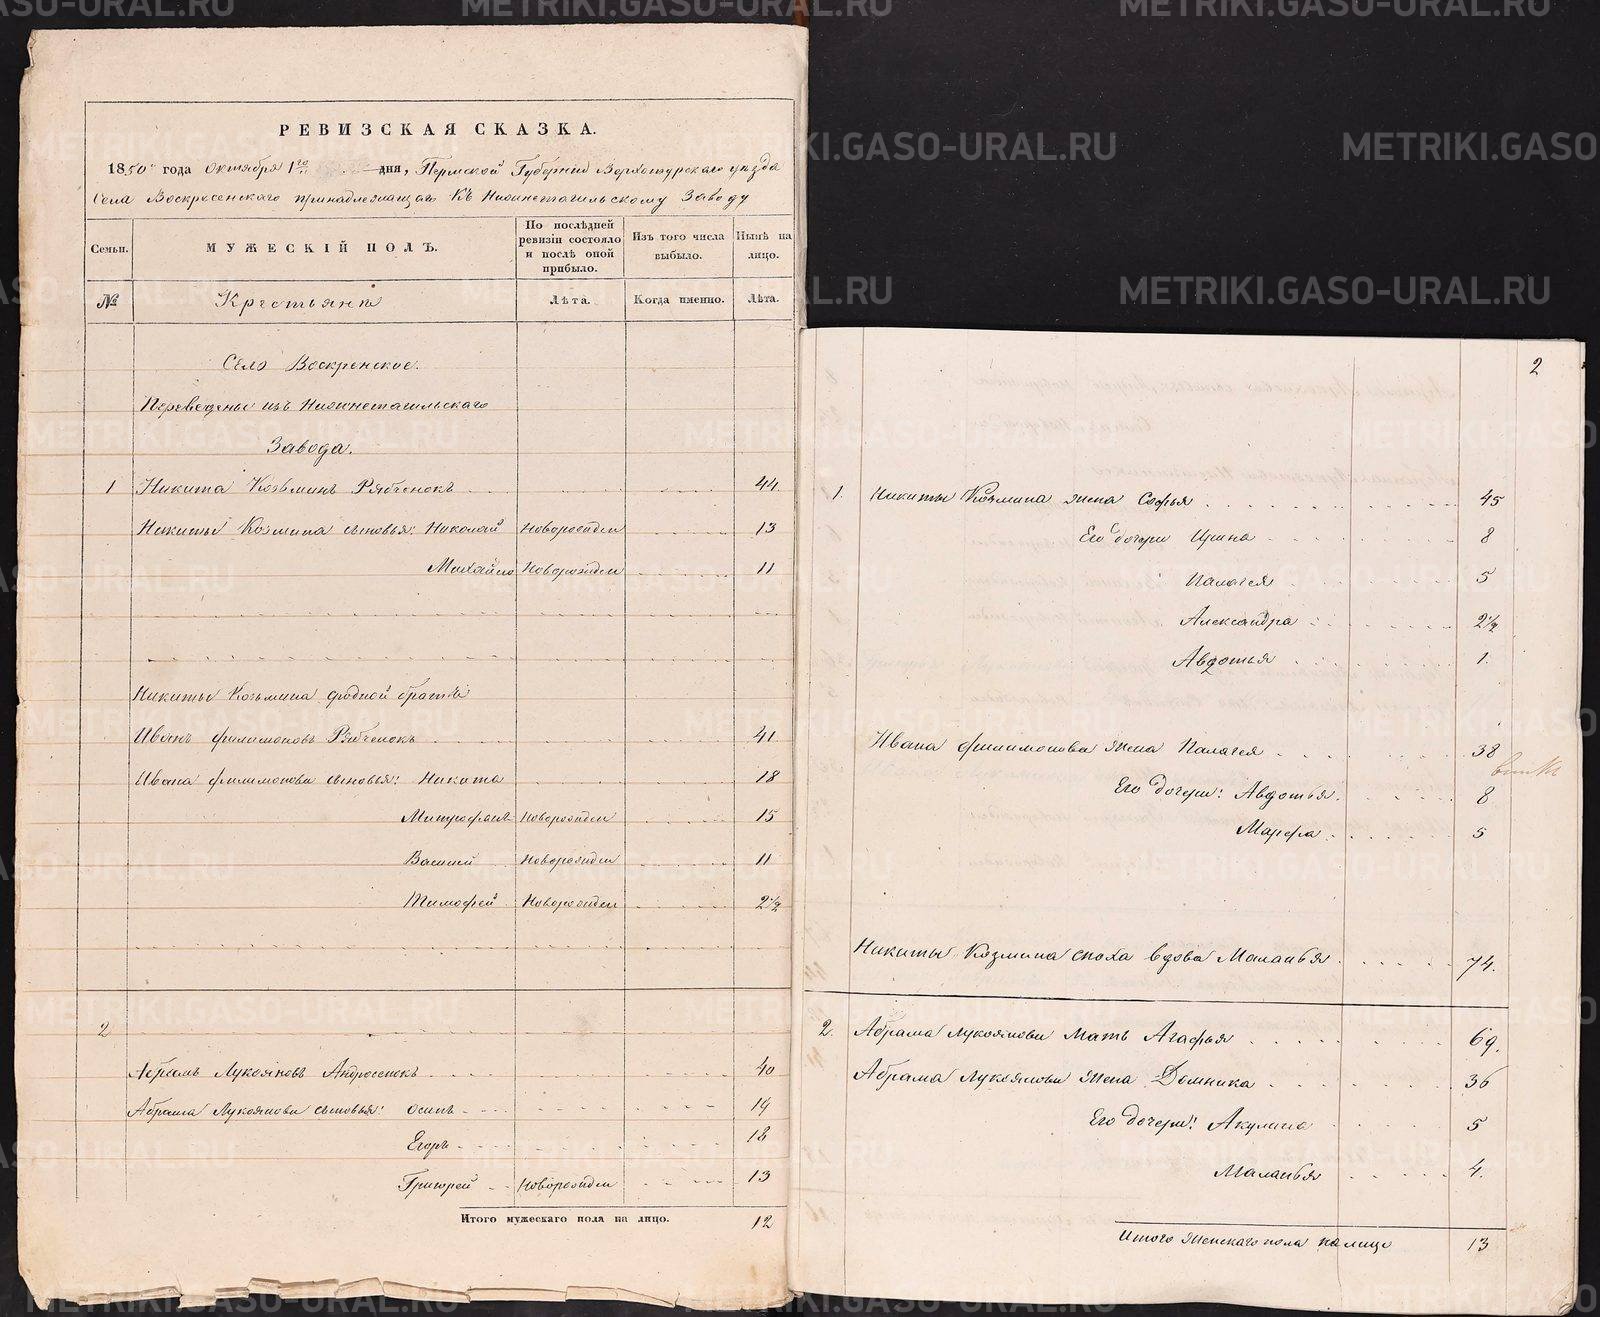 РЕВИЗСКАЯ СКАЗКА.
1850 года Октября 1го дня, Пермской Губернiи Верхотурскаго уѣзда
Села Воскресенскаго принадлежащаго Къ Нижнетагильскому Заводу
Семьи.
МУЖЕСКІЙ ПОЛЪ.
По послѣдней ревизіи состояло и послѣ оной прибыло.
Изъ того числа выбыло.
Нынѣ на лицо.
№
Крестьяне
Лѣта.
Когда именно.
Лѣта.
Село Воскренское.
Переведены изъ Нижнетагильскаго
Завода.
1 Никита Козьминъ Рябченокъ 44
Никиты Козмина сыновья: Николай Новорожден 13
Михайло Новорожден 11
Никиты Козьмина родной братъ
Иванъ Филимоновъ Рябченокъ 41
Ивана Филимонова сыновья: Никита 18
Митрофанъ Новорожден 15
Василий Новорожден 11
Тимофей Новорожден 2½
2
Абрамъ Лукояновъ Андросенокъ 40
Абрама Лукоянова сыновья: Осипъ 19
Егоръ 18
Григорей Новорожден 13
Итого мужескаго пола на лицо. 12
2
1. Никиты Козмина жена Софья 45
Его дочери Ирина 8
Палагея 5
Александра 2½
Авдотья 1.
Ивана Филимонова жена Палагея 38
Его дочери: Авдотья. 8
Марфа 5
Никиты Козмина сноха вдова Маланья 74.
2. Абрама Лукоянова Мать Агафья 69.
Абрама Лукоянова жена Домника 36
Его дочери: Акулина 5
Маланья 4.
Итого женскаго пола на лицо 13
METRIKI.GASO-URAL.RU